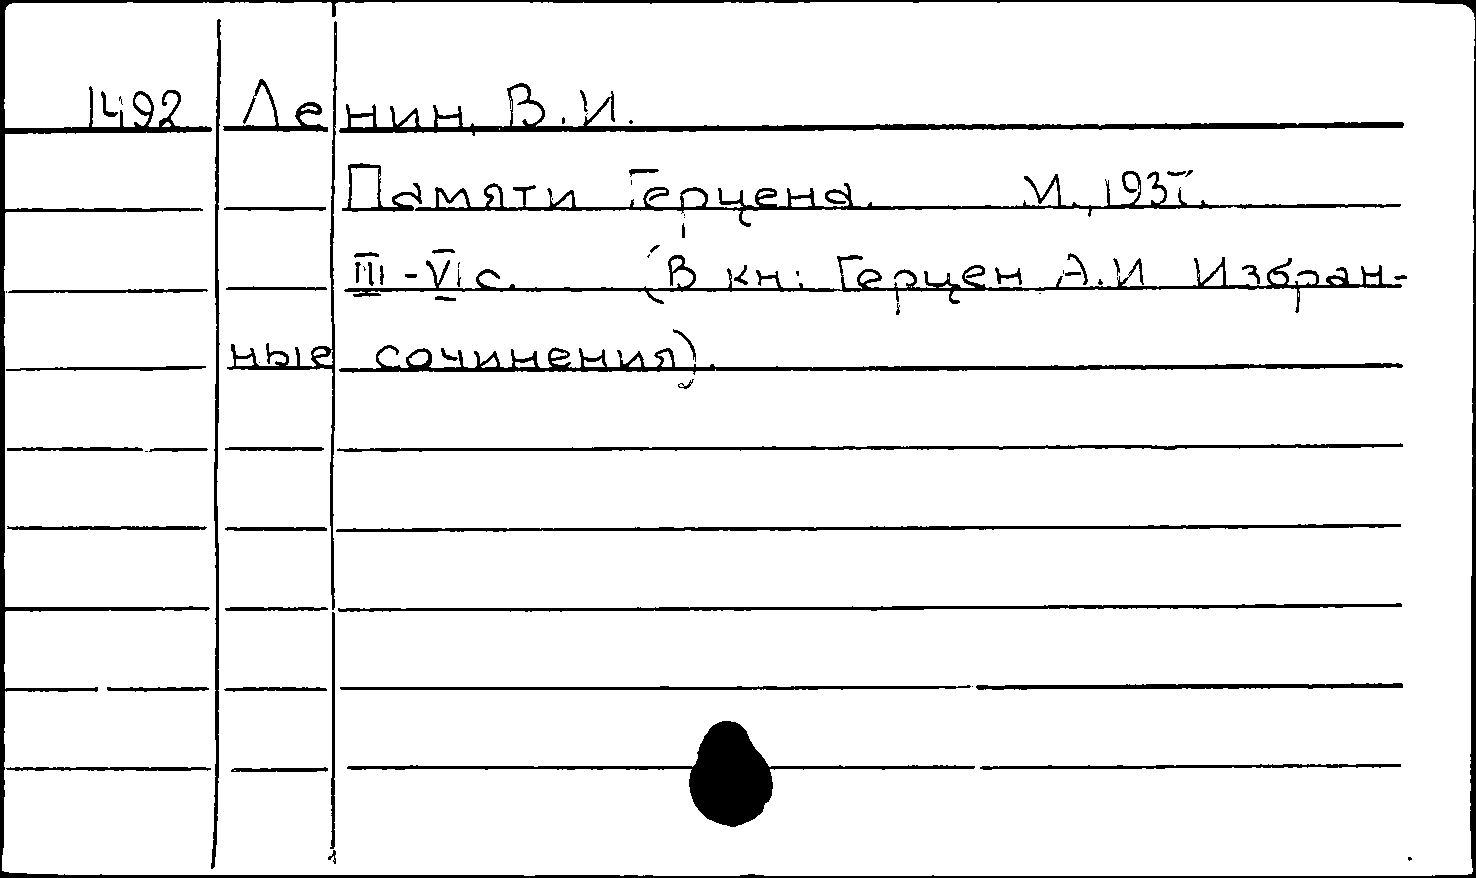 1492 Ленин, В.И.
Памяти Герцена. М., 1937.
III-VI с. (В кн: Герцен А.И Избран-
ные сочинения).